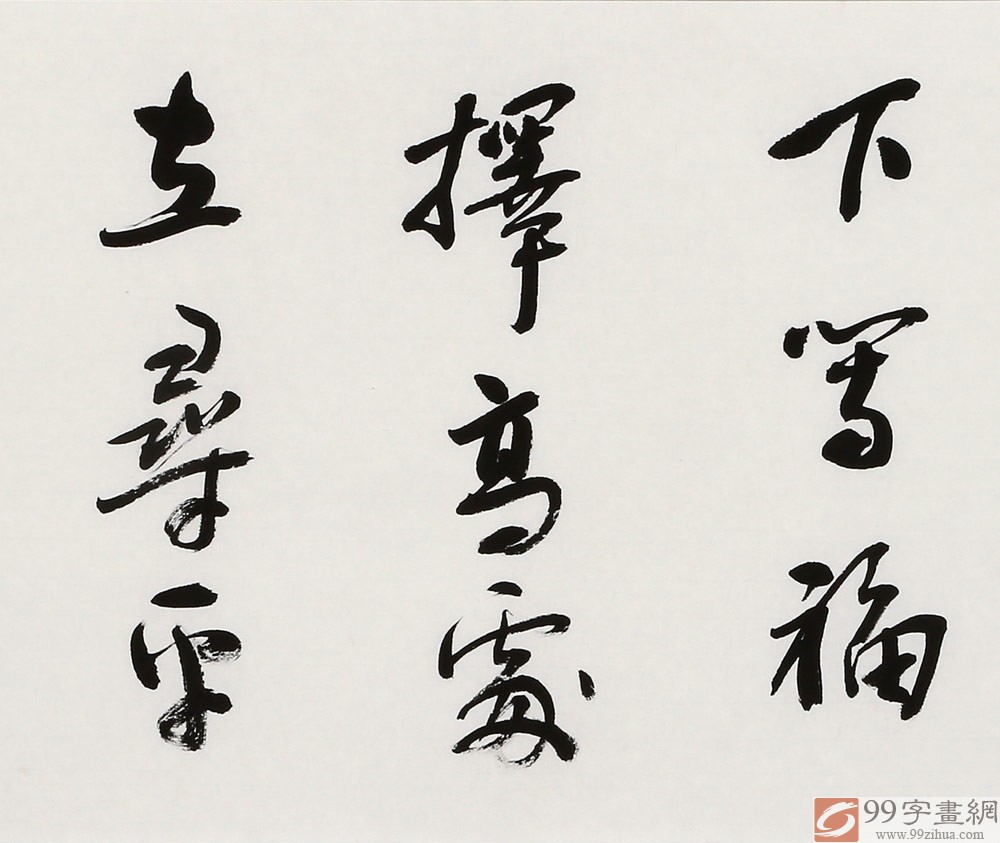 下等福
擇高處
立尋平
99字畫網
www.99zihua.com